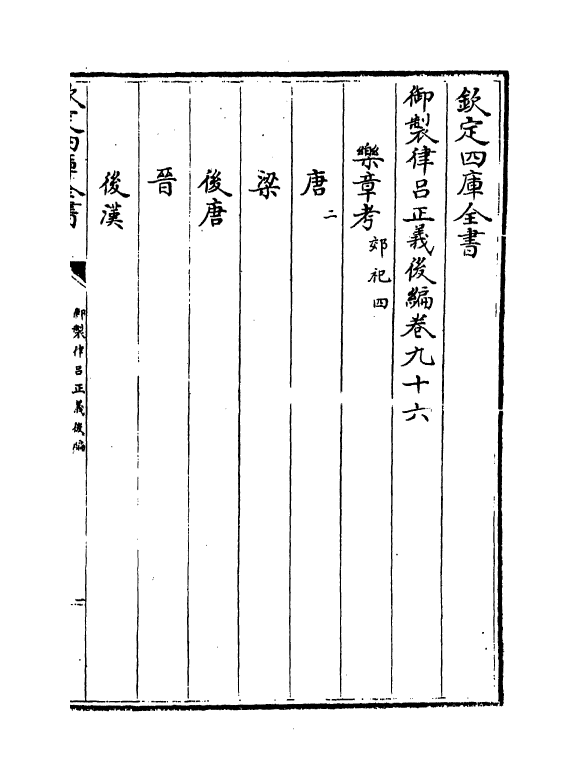 欽定四庫全書
御製律呂正義後編卷九十六
樂章考 郊祀四
唐 二
梁
後唐
晉
後漢
欽定四庫全書
御製律呂正義後編
一